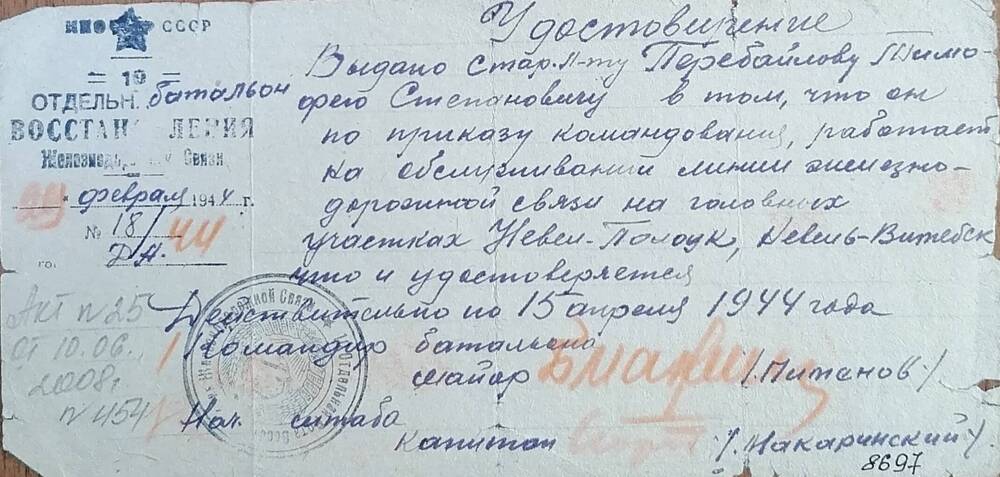 Удостовирение
НКО СССР
= 19 =
ОТДЕЛЬН. батальон
ВОССТАНО ЛЕНИЯ
Железнодор Связи
24 февраля 1944 г.
№ 18/44
Д.А.
Выдано Стар. Л-ту Перебайлову Тимо-
фею Степановичу в том, что он
по приказу командования, работает
на обслуживании линии железно-
дорожной связи на головных
участках Невел-Полоцк, Невель-Витебск
что и удостоверяется
Действительно по 15 апреля 1944 года
Командир батальона
майор /.Питанов./
Нач. штаба
Капитан /.Накаринский./
Акт n 25
от 10.06.
2008г
n 454
8697